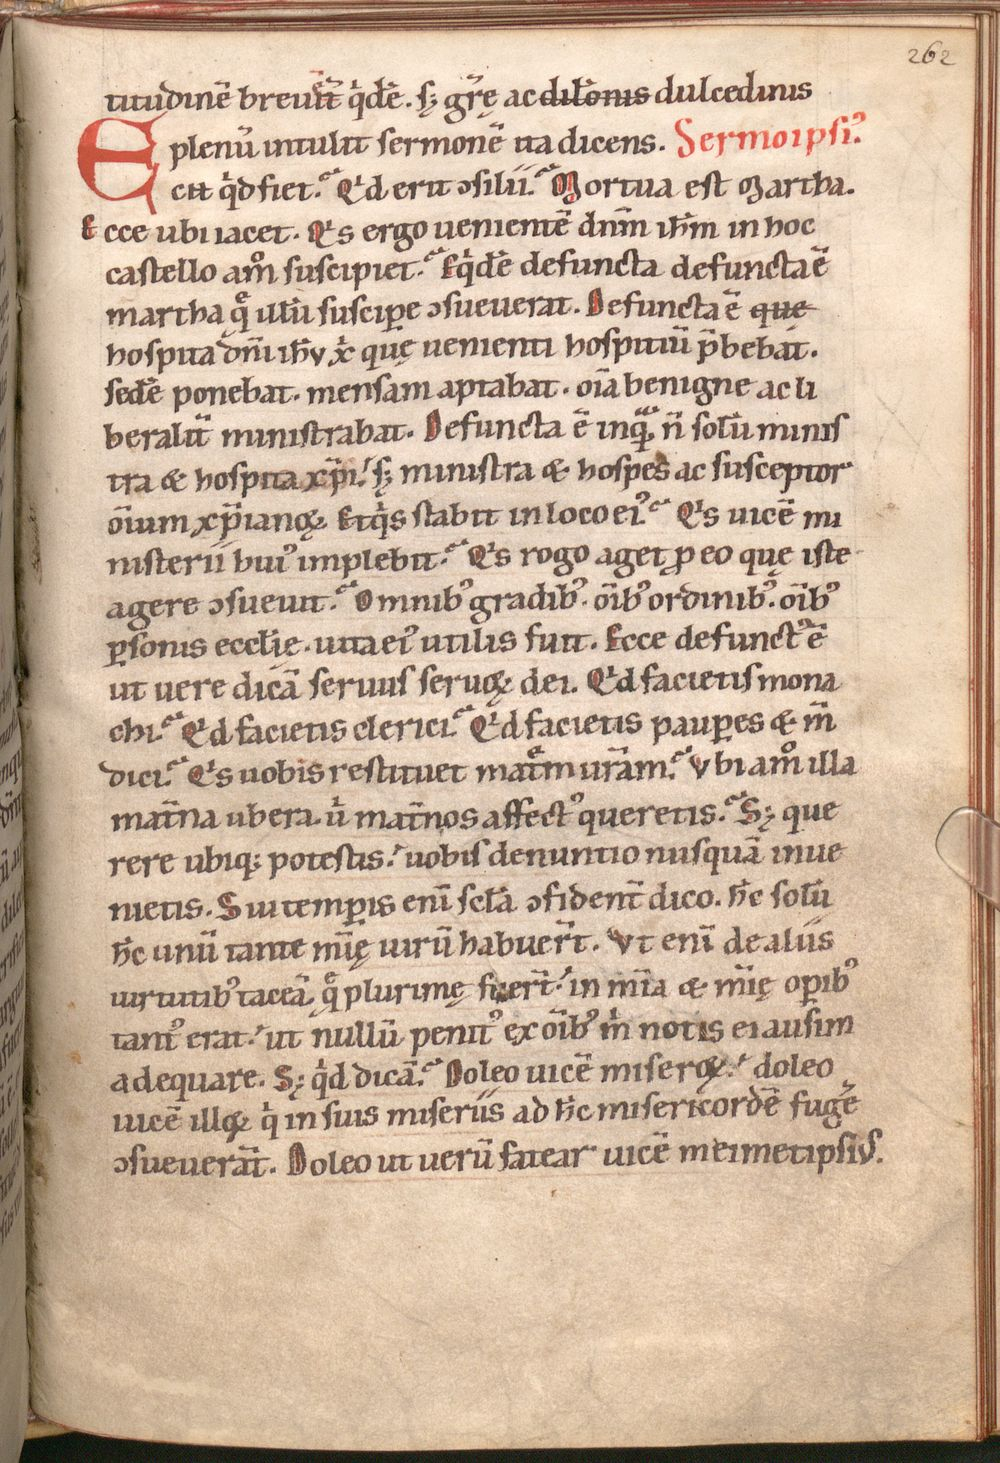 262
titudinē breuit̄ q̇dē. sꝫ gr̄ę ac dil̄onis dulcedinis
plenū intulit sermonē ita dicens. Sermo ipsiꝰ.
Ecit q̇d fiet? Qd erit ↄsilii? Mortua est martha.
Ecce ubi iacet. Qs ergo uenientē dn̄m ih̄m in hoc
castello am̊ suscipiet? Eq̇dē defuncta defuncta ē
martha q̄ illū suscipe ↄsueuerat. Defuncta ē que
hospita dn̄i ih̄v xp̄i quę uenienti hospitiū p̄bebat.
sedē ponebat. mensam aptabat. oīa benigne ac li
beralit̄ ministrabat. Defuncta ē inquā n̄ solū minis
tra & hospita xp̄i! sꝫ ministra & hospes ac susceptor
oīum xp̄ianoꝝ. Et q̇s stabit in loco eiꝰ? Qs uicē mi
nisterii huiꝰ implebit? Qs rogo aget ꝓ eo quę iste
agere ↄsueuit? Omnibꝰ gradibꝰ. oībꝰ ordinibꝰ. oībꝰ
ꝑsonis eccl̄ie. uita eiꝰ utilis fuit. Ecce defunctꝰ ē
ut uere dicā seruus seruoꝝ dei. Qd facietis mona
chi? Qd facietis clerici? Qd facietis pauꝑes & m̄
dici? Qs uobis restituet mat̄m ur̄am? Vbi am̊ illa
mat̄na ubera. ul̇ mat̄nos affectꝰ queretis? Sꝫ que
rere ubiqꝫ potestis! uobis denuntio nusquā inue
nietis. Sui temꝑis enī scl̄a ↄfident̄ dico. h̄c solū
h̄c unū tante mīę uirū habuer̄t. Vt enī de aliis
uirtutibꝰ taceā, q̄ plurimę fuer̄t! in mīa & mīę oꝑibꝰ
tantꝰ erat! ut nullū penitꝰ ex oībꝰ ṁ notis ei ausim
adequare. Sꝫ q̇d dicā? Doleo uicē miseroꝝ! doleo
uicē illoꝝ q̇ in suis miseriis ad h̄c misericordē fugē
ↄsueuerāt. Doleo ut uerū fatear uicē meimetipsiꝰ.